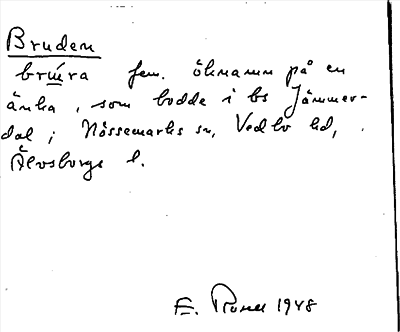 Bruden
fem. öknamn på en
änka, som bodde i bs Jämmer-
dal i Nössemarks sn, Vedbo hd,
Älvsborgs l.
E. 1948